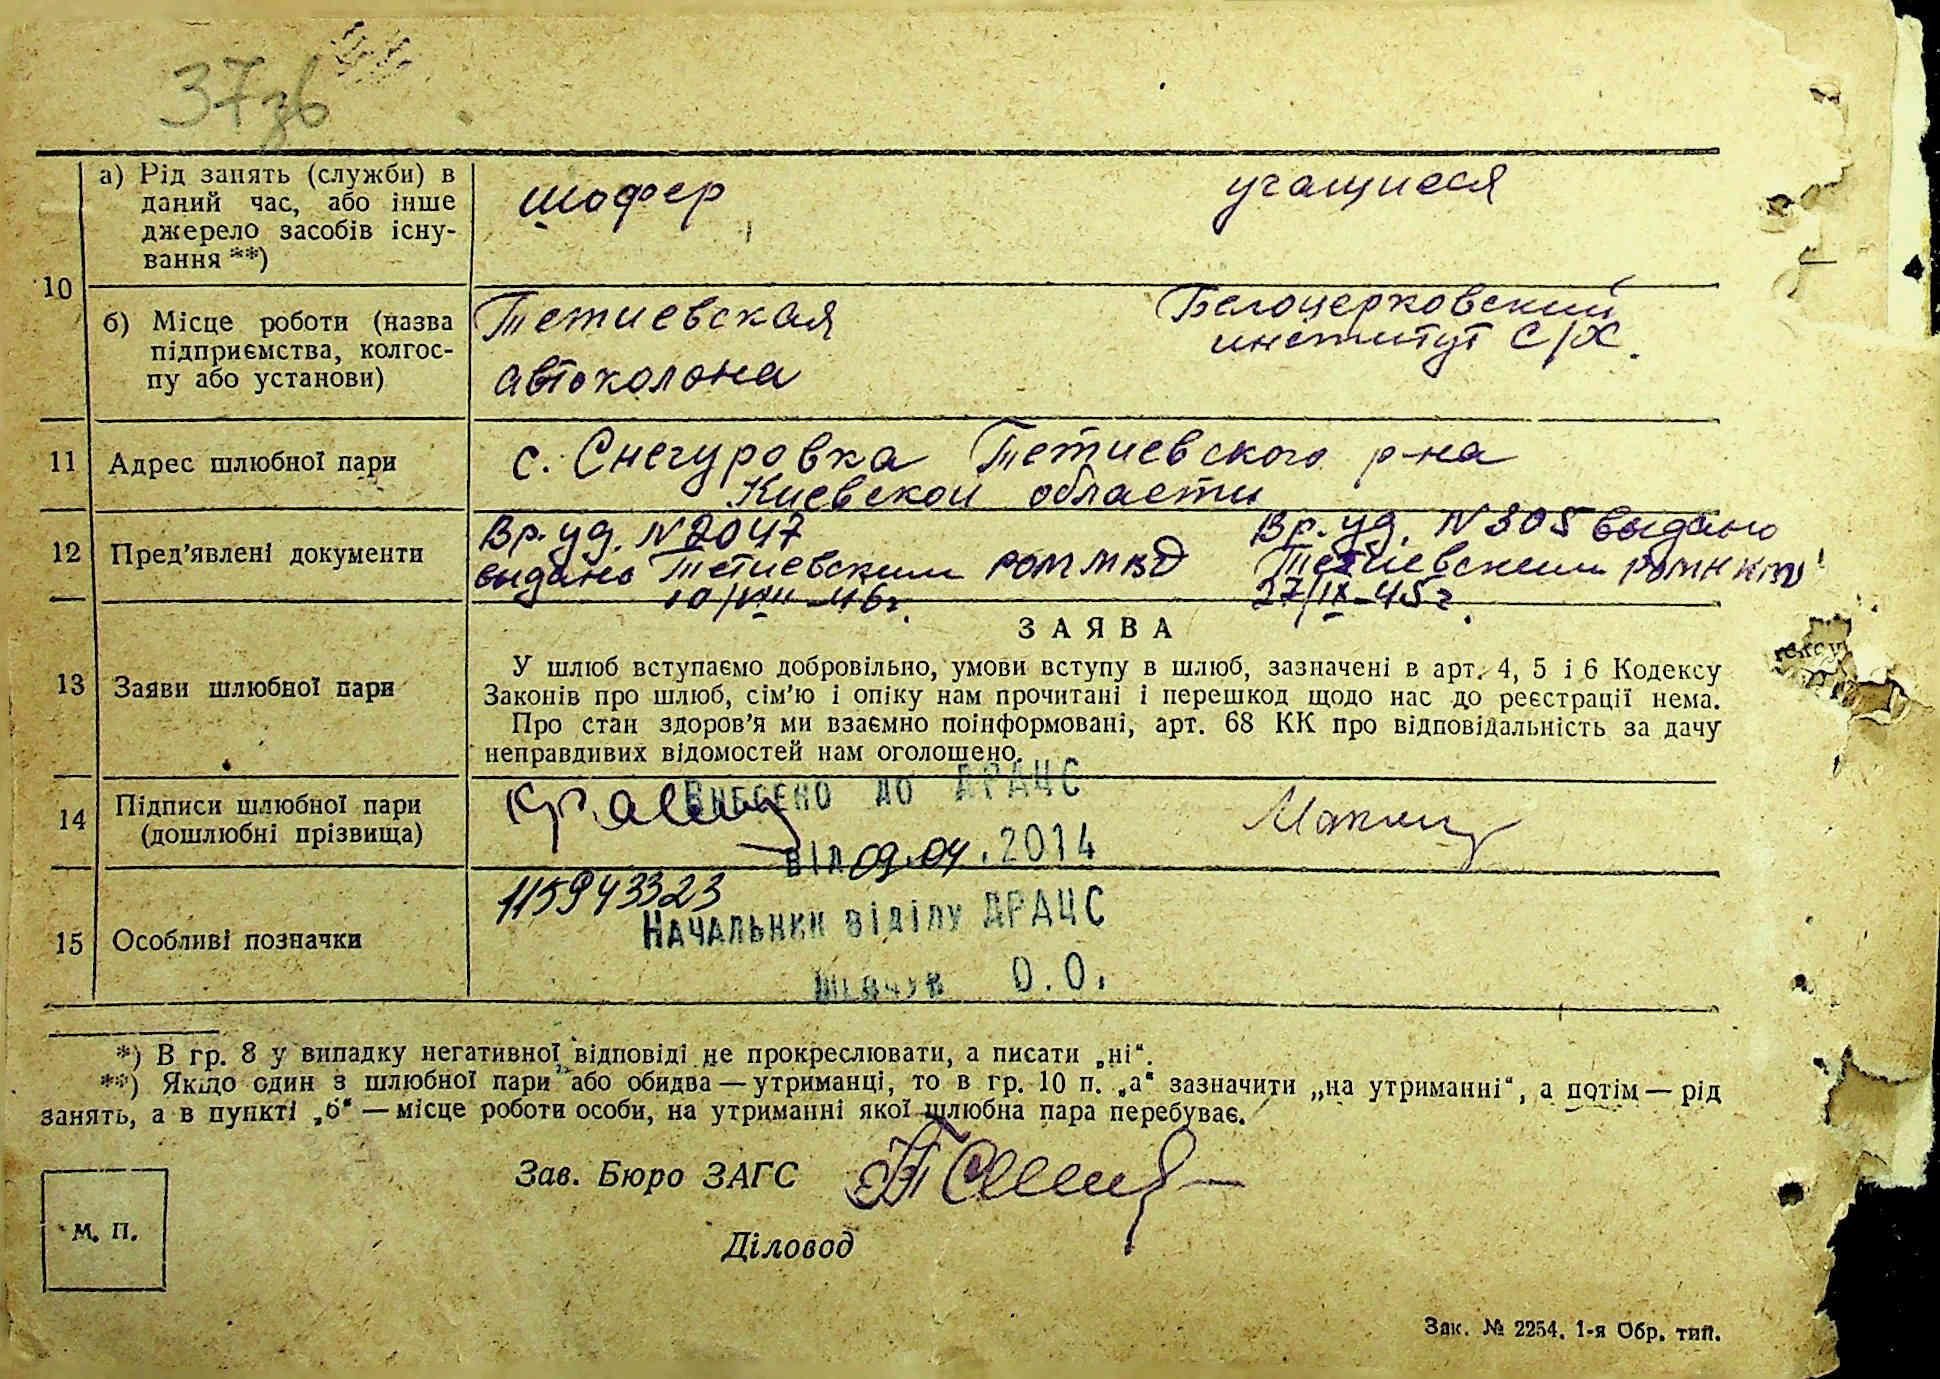 37зв
а) Рід занять (служби) в
даний час, або інше
джерело засобів існу-
вання **)
шофер
учащиеся
10
б) Місце роботи (назва
підприємства, колгос-
пу або установи)
Тетиевская
автоколона
Белоцерковский
институт С/Х.
11 Адрес шлюбної пари
с. Снегуровка Тетиевского р-на
Киевской области
12 Пред'явлені документи
Вр. уд. N 2047
выдано Тетиевским РОМ МВД
10/VIII-46 г.
Вр. уд. N 305 выдано
Тетиевским
27/IX-45 г.
ЗАЯВА
13 Заяви шлюбної пари
У шлюб вступаємо добровільно, умови вступу в шлюб, зазначені в арт. 4, 5 і 6 Кодексу
Законів про шлюб, сім'ю і опіку нам прочитані і перешкод щодо нас до реєстрації нема.
Про стан здоров'я ми взаємно поінформовані, арт. 68 КК про відповідальність за дачу
неправдивих відомостей нам оголошено.
14 Підписи шлюбної пари
(дошлюбні прізвища)
Внесено до ДРАЦС
від 09.04.2014
115943323
Начальник відділу ДРАЦС
Шевчук О.О.
15 Особливі позначки
*) В гр. 8 у випадку негативної відповіді не прокреслювати, а писати „ні".
**) Якщо один з шлюбної пари або обидва — утриманці, то в гр. 10 п. „а" зазначити „на утриманні", а потім — рід
занять, а в пункті „б" — місце роботи особи, на утриманні якої шлюбна пара перебуває.
Зав. Бюро ЗАГС
М. П.
Діловод
Зак. № 2254. 1-я Обр. тип.